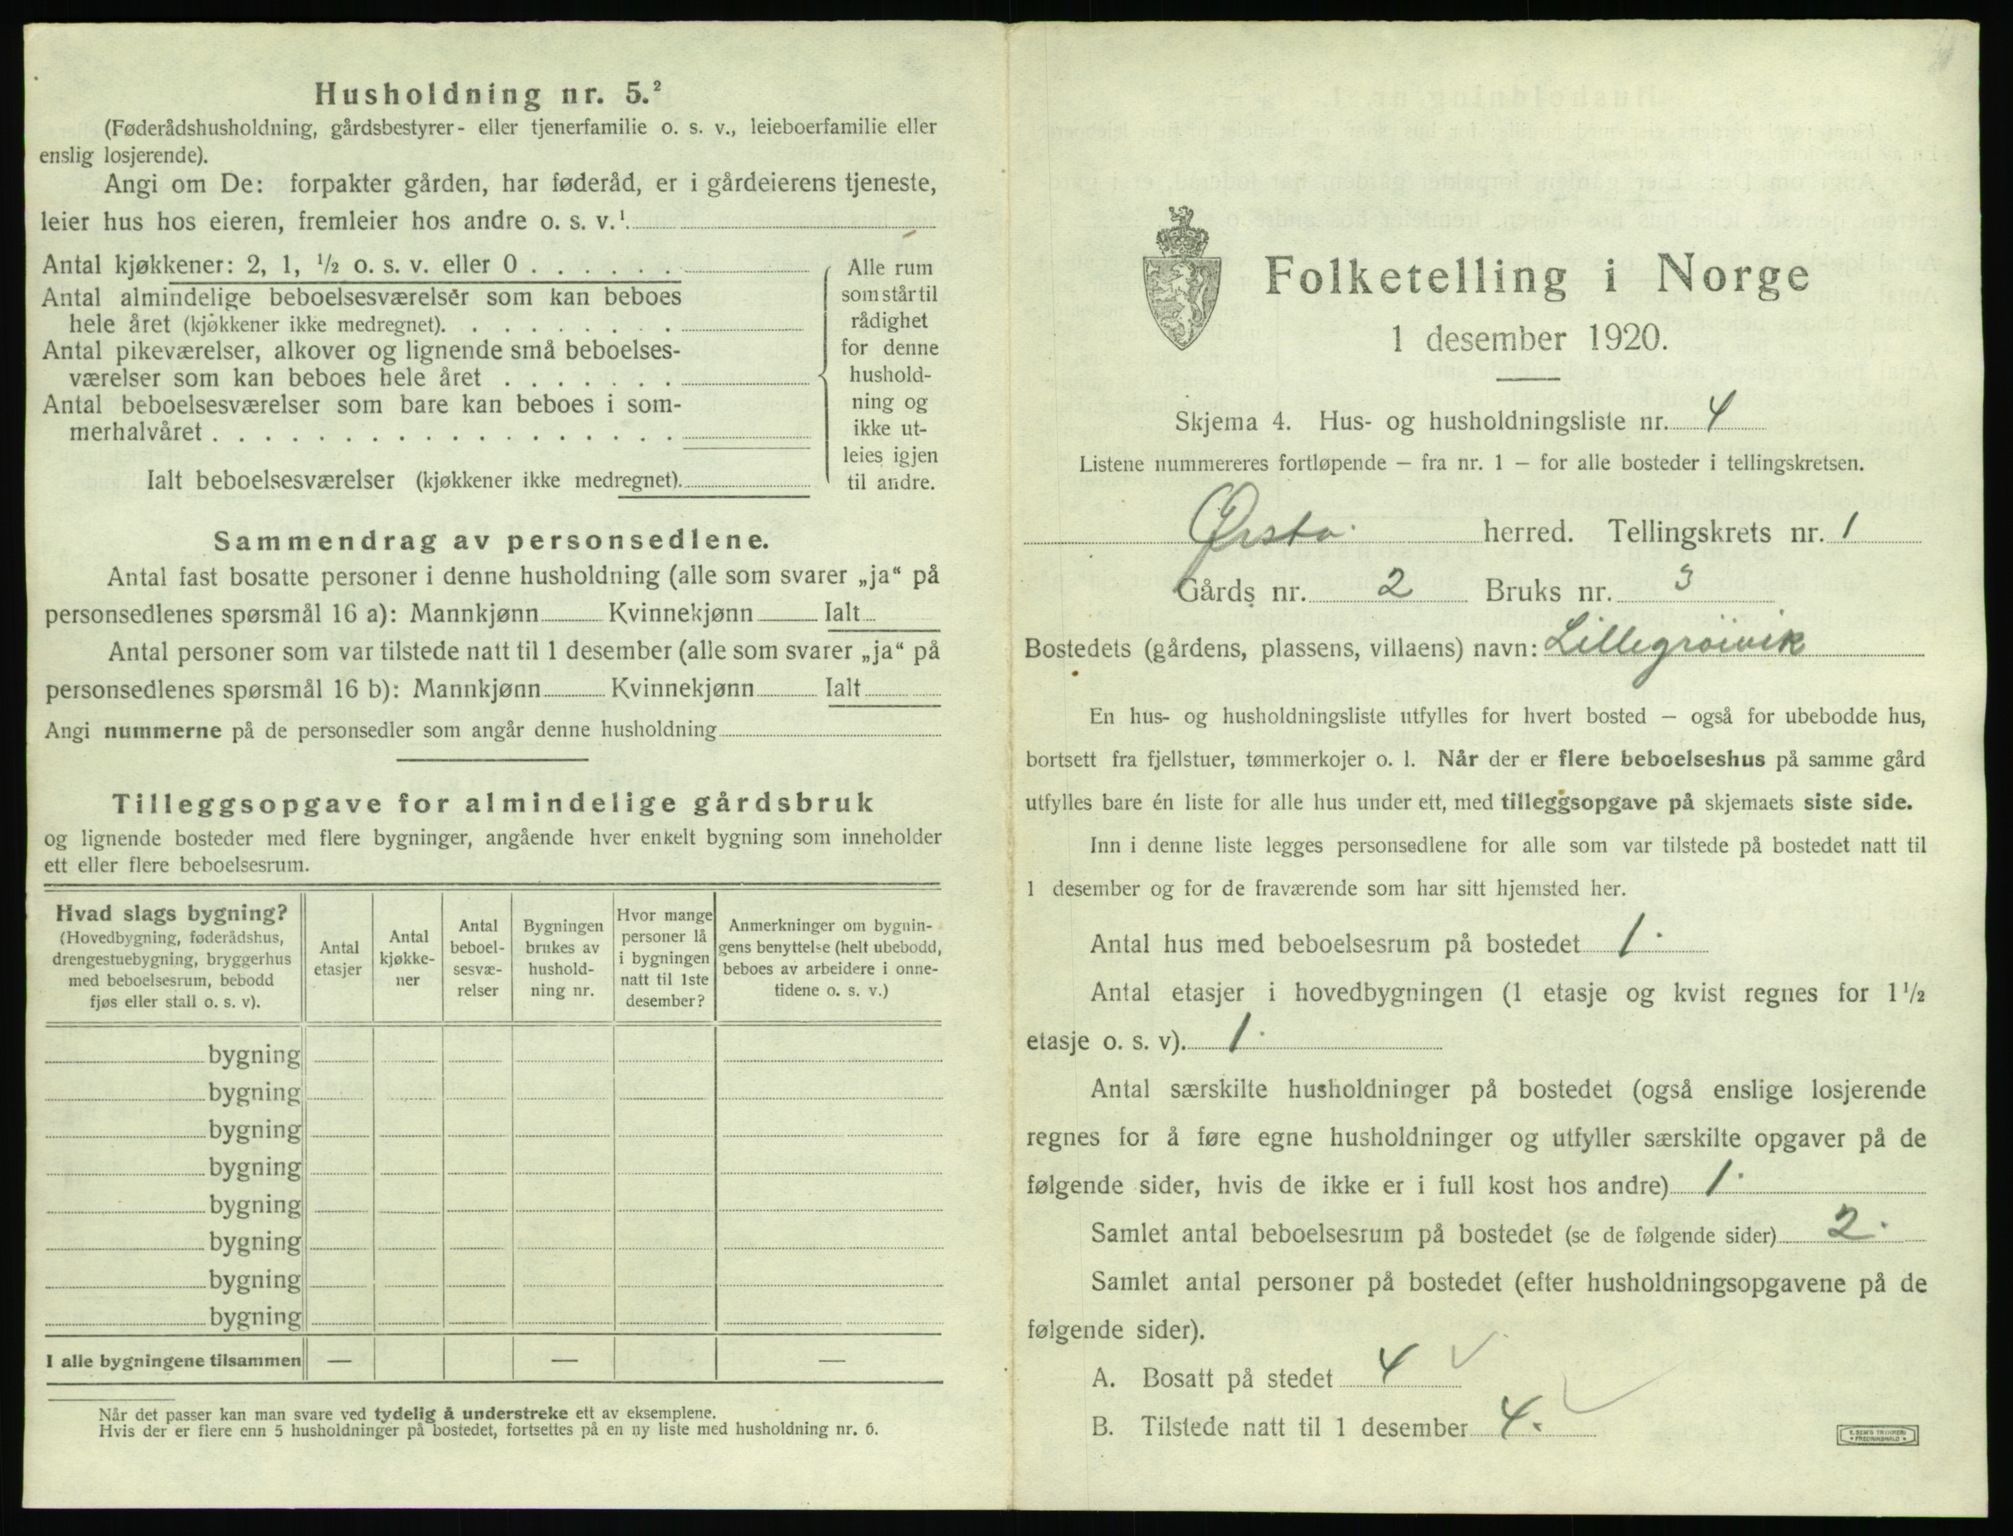 Husholdning nr. 5.²
(Føderådshusholdning, gårdsbestyrer- eller tjenerfamilie o. s. v., leieboerfamilie eller
enslig losjerende).
Angi om De: forpakter gården, har føderåd, er i gårdeierens tjeneste,
leier hus hos eieren, fremleier hos andre o. s. v.¹
Antal kjøkkener: 2, 1, ½ o. s. v. eller 0 . . . . . .
Antal almindelige beboelsesværelser som kan beboes
hele året (kjøkkener ikke medregnet). . . . . . . . .
Antal pikeværelser, alkover og lignende små beboelses-
værelser som kan beboes hele året . . . . . . .
Antal beboelsesværelser som bare kan beboes i som-
merhalvåret . . . . . . . . . . . . . . . . . .
Ialt beboelsesværelser (kjøkkener ikke medregnet).
Alle rum
som står til
rådighet
for denne
hushold-
ning og
ikke ut-
leies igjen
til andre.
Sammendrag av personsedlene.
Antal fast bosatte personer i denne husholdning (alle som svarer „ja“ på
personsedlenes spørsmål 16 a): Mannkjønn Kvinnekjønn Ialt
Antal personer som var tilstede natt til 1 desember (alle som svarer „ja“ på
personsedlenes spørsmål 16 b): Mannkjønn Kvinnekjønn Ialt
Angi nummerne på de personsedler som angår denne husholdning
Tilleggsopgave for almindelige gårdsbruk
og lignende bosteder med flere bygninger, angående hver enkelt bygning som inneholder
ett eller flere beboelsesrum.
Hvad slags bygning?
(Hovedbygning, føderådshus,
drengestuebygning, bryggerhus
med beboelsesrum, bebodd
fjøs eller stall o. s. v).
Antal
etasjer
Antal
kjøkke-
ner
Antal
beboel-
sesvæ-
relser
Bygningen
brukes av
hushold-
ning nr.
Hvor mange
personer lå
i bygningen
natt til 1ste
desember?
Anmerkninger om bygnin-
gens benyttelse (helt ubebodd,
beboes av arbeidere i onne-
tidene o. s. v.)
bygning
bygning
bygning
bygning
bygning
bygning
bygning
bygning
I alle bygningene tilsammen — — —
Når det passer kan man svare ved tydelig å understreke ett av eksemplene.
Hvis der er flere enn 5 husholdninger på bostedet, fortsettes på en ny liste med husholdning nr. 6.
Folketelling i Norge
1 desember 1920.
Skjema 4. Hus- og husholdningsliste nr. 4
Listene nummereres fortløpende — fra nr. 1 — for alle bosteder i tellingskretsen.
Ørsta herred. Tellingskrets nr. 1
Gårds nr. 2 Bruks nr. 3
Bostedets (gårdens, plassens, villaens) navn: Lillegröivik
En hus- og husholdningsliste utfylles for hvert bosted — også for ubebodde hus,
bortsett fra fjellstuer, tømmerkojer o. l. Når der er flere beboelseshus på samme gård
utfylles bare én liste for alle hus under ett, med tilleggsopgave på skjemaets siste side.
Inn i denne liste legges personsedlene for alle som var tilstede på bostedet natt til
1 desember og for de fraværende som har sitt hjemsted her.
Antal hus med beboelsesrum på bostedet 1.
Antal etasjer i hovedbygningen (1 etasje og kvist regnes for 1½
etasje o. s. v). 1.
Antal særskilte husholdninger på bostedet (også enslige losjerende
regnes for å føre egne husholdninger og utfyller særskilte opgaver på de
følgende sider, hvis de ikke er i full kost hos andre) 1.
Samlet antal beboelsesrum på bostedet (se de følgende sider) 2.
Samlet antal personer på bostedet (efter husholdningsopgavene på de
følgende sider).
A. Bosatt på stedet 4 ✓
B. Tilstede natt til 1 desember 4. ✓